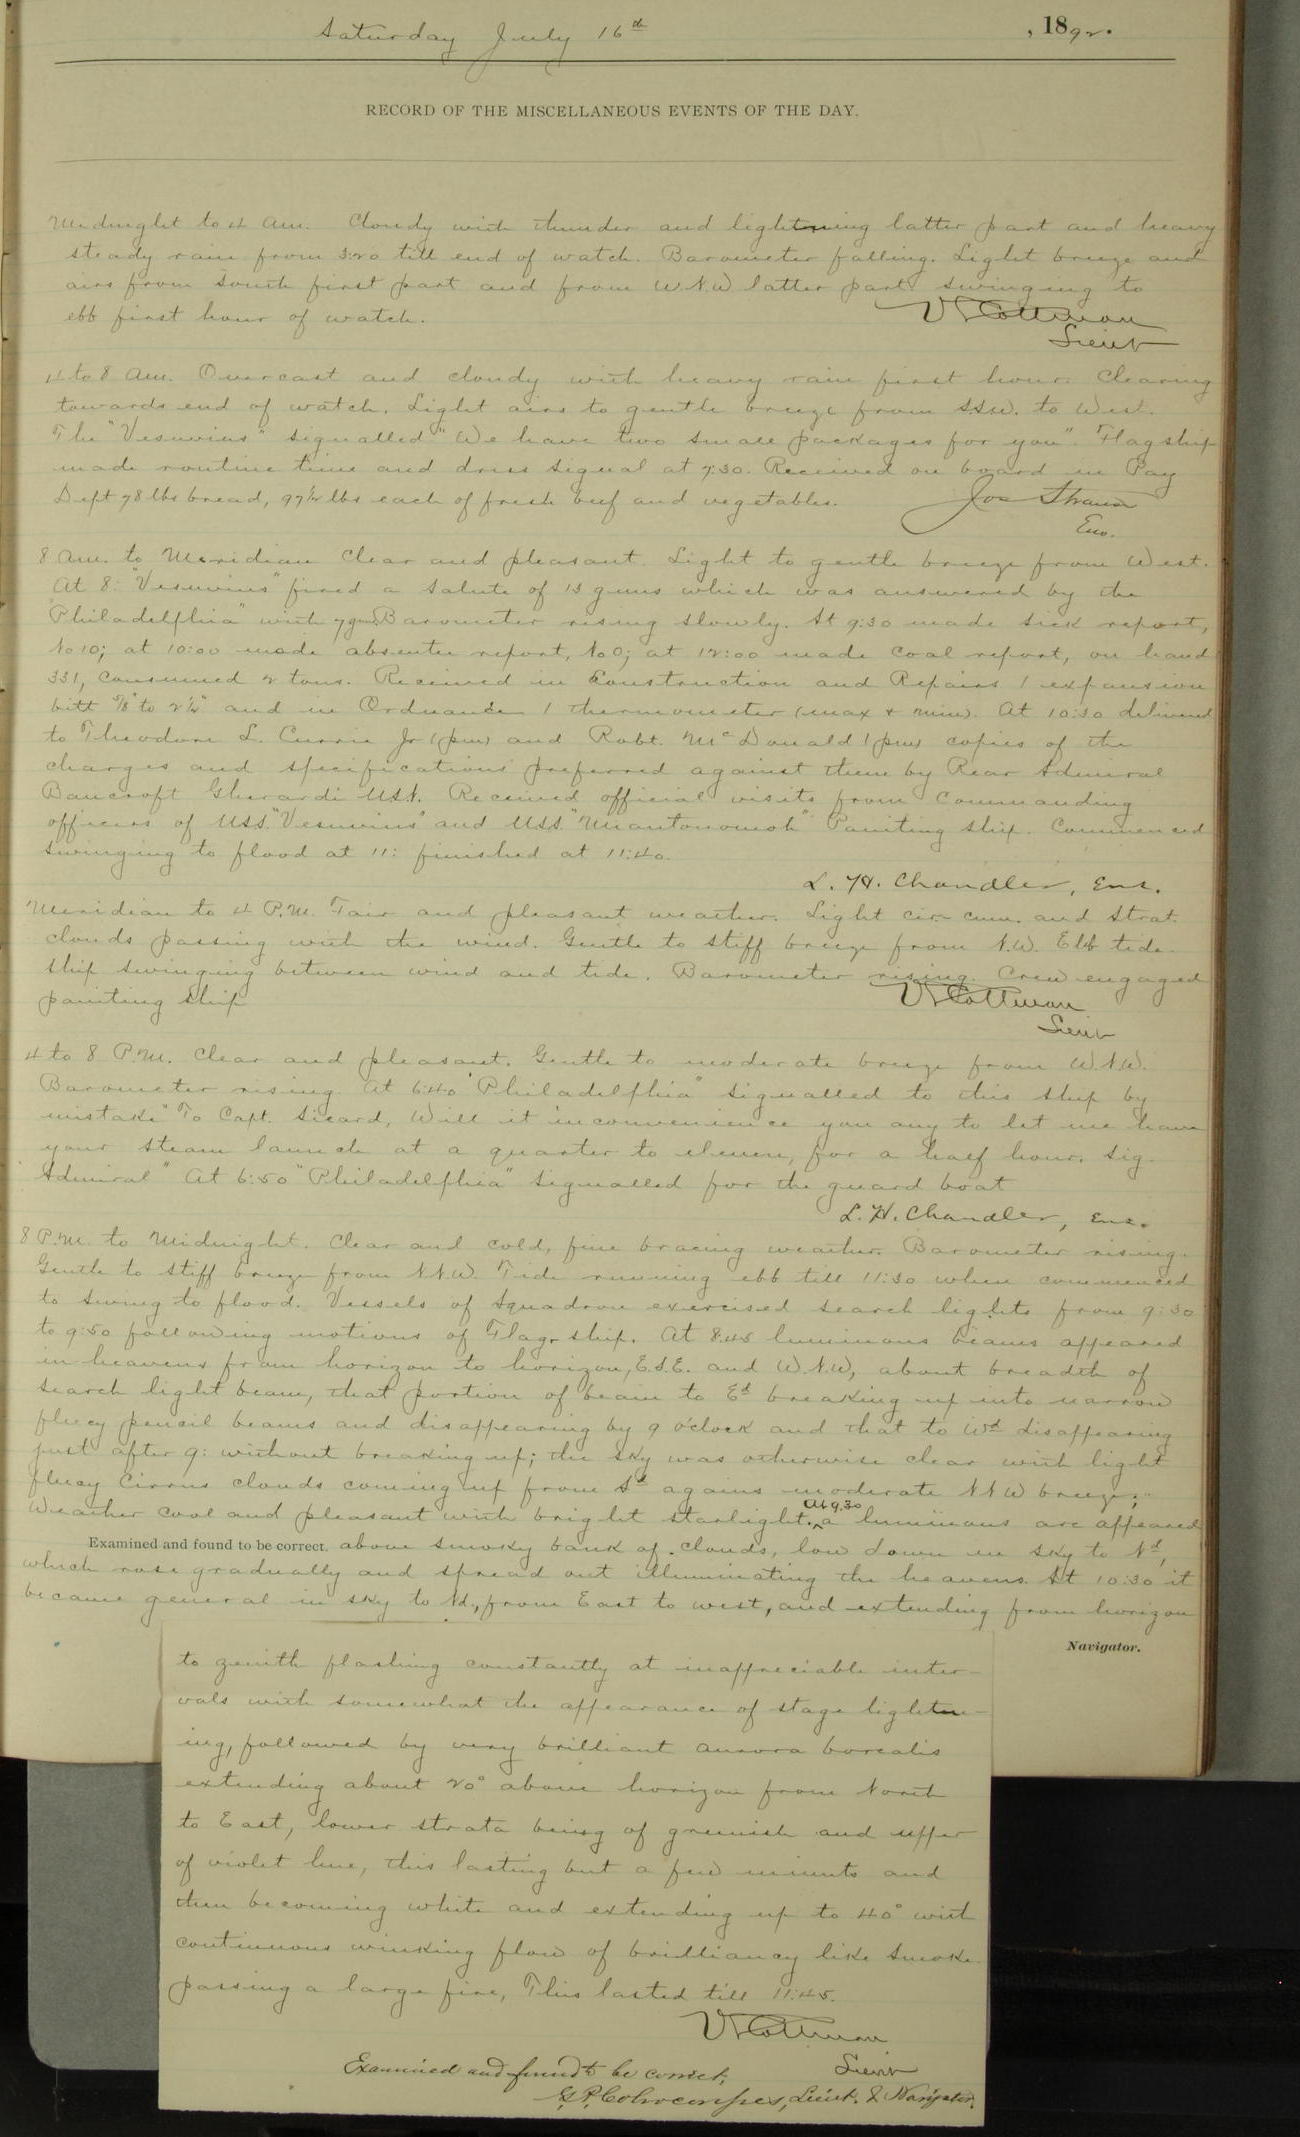 Saturday July 16th , 1892.
RECORD OF THE MISCELLANEOUS EVENTS OF THE DAY.
Midnight to 4 am. Cloudy with thunder and lightning latter part and heavy
steady rain from 3:20 till end of watch. Barometer falling. Light breeze and
airs from South first part and from W.N.W latter part swinging to
ebb first hour of watch.
V Cottman
Lieut
4 to 8 am. Overcast and cloudy with heavy rain first hour. Clearing
towards end of watch. Light airs to gentle breeze from S.S.W. to West.
The "Vesuvius" signalled "We have two small packages for you". Flagship
made routine time and dress signal at 7:30. Received on board in Pay
Dept 78 lbs bread, 97½ lbs each of fresh beef and vegetables.
Jos Strauss
Ens.
8 am. to Meridian Clear and pleasant. Light to gentle breeze from West.
At 8: "Vesuvius" fired a salute of 13 guns which was answered by the
"Philadelphia" with 7 guns Barometer rising slowly. At 9:30 made sick report,
No 10; at 10:00 made absentee report, No 0; at 12:00 made coal report, on hand
331, consumed 2 tons. Received in Construction and Repairs 1 expansion
bitt ⅝" to 2¼" and in Ordnance 1 thermometer (max & min). At 10:30 delivered
to Theodore L. Currie Jr and Robt. McDonald copies of the
charges and specifications preferred against them by Rear Admiral
Bancroft Gherardi USN. Received official visits from Commanding
officers of U.S.S. "Vesuvius" and U.S.S. "Miantonomoh" Painting ship. Commenced
swinging to flood at 11: finished at 11:40.
L. H. Chandler, Ens.
Meridian to 4 P.M. Fair and pleasant weather. Light cir-cum. and strat.
clouds passing with the wind. Gentle to stiff breeze from N.W. Ebb tide
ship swinging between wind and tide. Barometer rising. Crew engaged
painting ship
V Cottman
Lieut
4 to 8 P.M. Clear and pleasant. Gentle to moderate breeze from W.N.W.
Barometer rising. At 6:40 "Philadelphia" signalled to this ship by
mistake "To Capt. Sicard, Will it inconvenience you any to let me have
your steam launch at a quarter to eleven, for a half hour. Sig.
Admiral" At 6:50 "Philadelphia" signalled for the guard boat
L. H. Chandler, Ens.
8 P.M. to Midnight. Clear and cold, fine bracing weather. Barometer rising.
Gentle to stiff breeze from N.N.W. Tide running ebb till 11:30 when commenced
to swing to flood. Vessels of Squadron exercised search lights from 9:30
to 9:50 following motions of Flag-ship. At 8:45 luminous beams appeared
in heavens from horizon to horizon, E.S.E. and W.N.W, about breadth of
search light beam, that portion of beam to Ed breaking up into narrow
fleecy pencil beams and disappearing by 9 o'clock and that to Wd disappearing
just after 9: without breaking up; the sky was otherwise clear with light
fleecy Cirrus clouds coming up from Sd agains moderate N N W breeze;
Weather cool and pleasant with bright starlight. At 9.30 a luminous arc appeared
Examined and found to be correct. above smoky bank of clouds, low down in sky to Nd,
which rose gradually and spread out illuminating the heavens. At 10:30 it
became general in sky to Nd., from East to west, and extending from horizon
Navigator.
to zenith flashing constantly at inappreciable inter-
vals with somewhat the appearance of stage lighten-
ing, followed by very brilliant aurora borealis
extending about 20° above horizon from North
to East, lower strata being of greenish and upper
of violet hue, this lasting but a few minutes and
then becoming white and extending up to 40° with
continuous winking flow of brilliancy like smoke
passing a large fire, This lasted till 11:45.
V Cottman
Lieut
Examined and found to be correct,
G.P. Colvocoresses, Lieut. & Navigator.